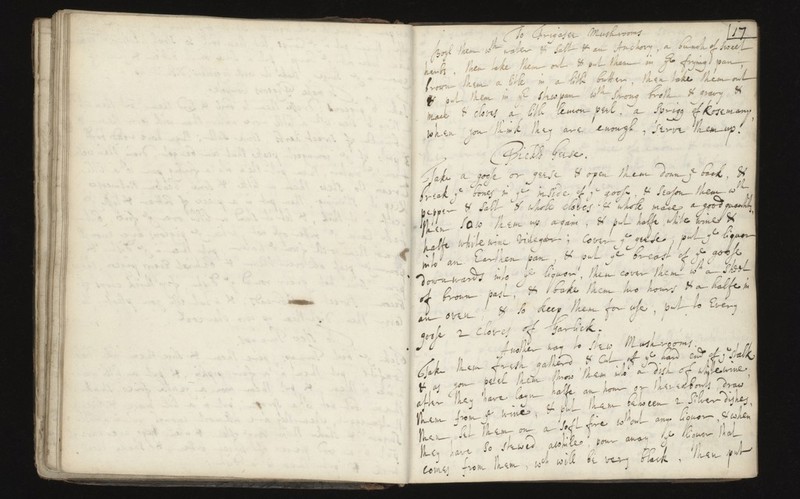 17
To fricasee Mushrooms
Boyl them wth water & salt & an Anchovy, a bunch of sweet
hearbs, then take them out & put them in ye frying pan,
brown them a litle in a litle butter, then take them out
& put them in ye stewpan wth strong broth & gravy &
mace & cloves a litle lemon peel, a sprigg of Rosemary,
when you think they are enough, serve them up.
Pickle Geese.
Take a goose or geese & open them down ye back, &
break ye bones in ye inside of ye goose, & season them wth
pepper & salt & whole cloves & whole mace a good quantity,
then sow them up again, & put halfe white wine &
halfe white wine vinegar; cover ye geese, put ye liquor
into an Earthen pan, & put ye breast of ye goose
downwards into ye liquor, then cover them wth a sheet
of brown past, & bake them two hours & a halfe in
an oven & so keep them for use, put to Every
goose 2 cloves of Garlick.
Another way to stew Mushrooms.
Take them fresh gathered & Cut of ye hard end of ye stalk
& as you peel them throw them into a dish of white wine,
after they have layn halfe an hour or thereabouts draw
them from ye wine, & put them between 2 silver dishes,
then set them on a soft fire without any liquor, & when
they have so stewed awhile, pour away ye liquor that
comes from them, wch will be very black, then put